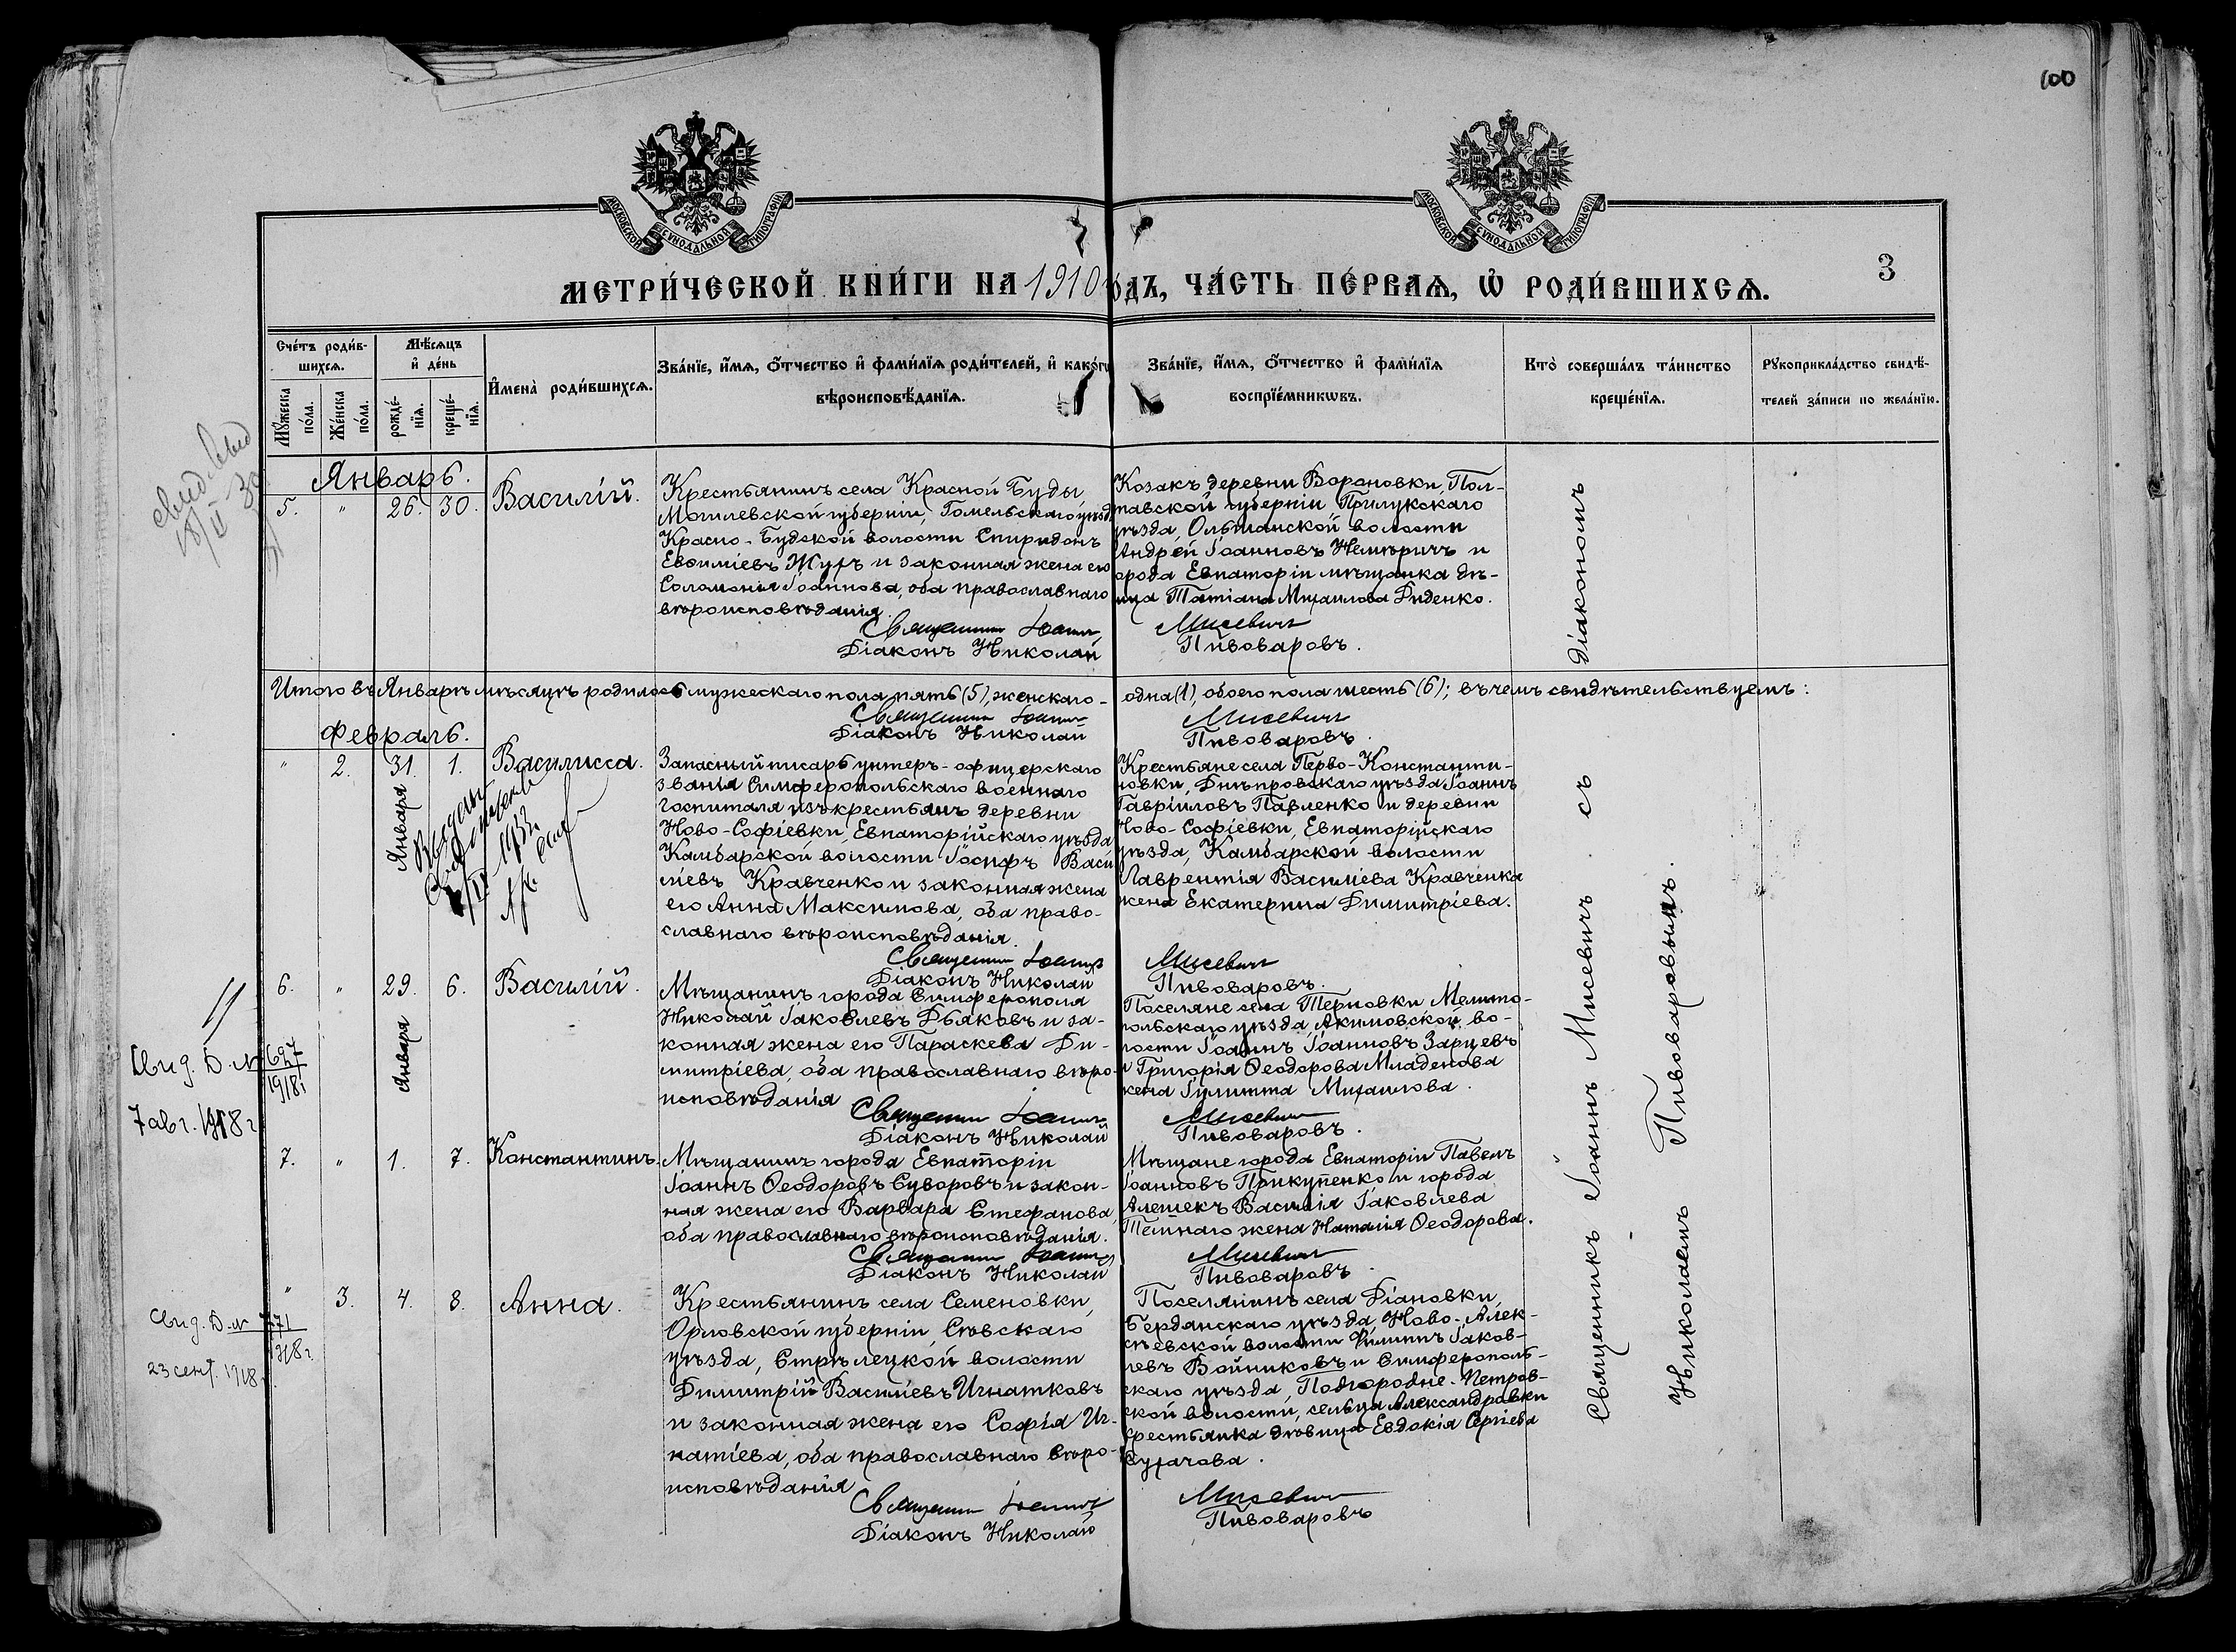 100
МОСКОВСКОЙ СѴНОДАЛЬНОЙ ТИПОГРАФІИ
МОСКОВСКОЙ СѴНОДАЛЬНОЙ ТИПОГРАФІИ
МЕТРИ́ЧЕСКОЙ КНИ́ГИ НА 1910 го́дъ, ЧА́СТЬ ПЕ́РВАѦ, Ѡ҆ РОДИ́ВШИХСѦ.
3
Сче́тъ роди́в-
шихсѧ.
Мѹ́жеска по́ла.
Же́нска по́ла.
Мѣ́сѧцъ
и҆ де́нь
рожде́-нїѧ.
креще́-нїѧ.
И҆мена̀ роди́вшихсѧ.
Зва́нїе, и҆́мѧ, ѻ҆́тчество и҆ фами́лїѧ роди́телей, и҆ како́гѡ
вѣроисповѣ́данїѧ.
Зва́нїе, и҆́мѧ, ѻ҆́тчество и҆ фами́лїѧ
воспрїе́мникѡвъ.
Кто̀ соверша́лъ та́инство
креще́нїѧ.
Рѹкоприкла́дство свидѣ́-
телей за́писи по жела́нїю.
Январь.
5. " 26. 30. Василій.
Крестьянинъ села Красной Буды,
Могилевской губерніи, Гомельскаго уѣзд
Красно-Будской волости Спиридонъ
Евѳиміевъ Журъ и законная жена его
Соломонія Іоаннова, оба православнаго
вѣроисповѣданія.
Священникъ Іоаннъ
Діаконъ Николай
Козакъ деревни Ворановки, Пол-
тавской губерніи Прилукскаго
уѣзда, Ольшанской волости
Андрей Іоанновъ Немѣричъ и
города Евпаторіи мѣщанка дѣ-
вица Татіана Михаилова Диденко.
Мисевичъ
Пивоваровъ.
Итого въ Январѣ мѣсяцѣ родилось мужескаго пола пять (5), женскаго -
одна (1), обоего пола шесть (6); въ чемъ свидѣтельствуемъ:
Священникъ Іоаннъ
Діаконъ Николай
Мисевичъ
Пивоваровъ.
Февраль.
" 2. 31. 1. Василисса.
Января
1933
Запасный писарь унтеръ-офицерскаго
званія Симферопольскаго военнаго
госпиталя изъ крестьянъ деревни
Ново-Софіевки, Евпаторійскаго уѣзда
Камбарской волости Іосифъ Васи
ліевъ Кравченко и законная жена
его Анна Максимова, оба право-
славнаго вѣроисповѣданія.
Священникъ Іоаннъ
Діаконъ Николай
Крестьяне села Перво-Константи-
новки, Днѣпровскаго уѣзда Іоаннъ
Гавріиловъ Павленко и деревни
Ново-Софіевки, Евпаторійскаго
уѣзда, Камбарской волости
Лаврентія Василіева Кравченка
жена Екатерина Димитріева.
Мисевичъ
Пивоваровъ.
6. " 29. 6. Василій.
Января
Свид. D. № 697
1918 г.
7 авг. 1918 г.
Мѣщанинъ города Симферополя
Николай Іаковлевъ Дьяковъ и за-
конная жена его Параскева Ди-
митріева, оба православнаго вѣро-
исповѣданія
Священникъ Іоаннъ
Діаконъ Николай
Поселяне села Терновки Мелито-
польскаго уѣзда, Акимовской во-
лости Іоаннъ Іоанновъ Зарцевъ
и Григорія Ѳеодорова Младенова
жена Іулитта Михаилова.
Мисевичъ
Пивоваровъ.
7. " 1. 7. Константинъ.
Мѣщанинъ города Евпаторіи
Іоаннъ Ѳеодоровъ Суворовъ и закон-
ная жена его Варвара Стефанова,
оба православнаго вѣроисповѣданія.
Священникъ Іоаннъ
Діаконъ Николай
Мѣщане города Евпаторіи Павелъ
Іоанновъ Прикупенко и города
Алешекъ Василія Іаковлева
Темнаго жена Наталія Ѳеодорова.
Мисевичъ
Пивоваровъ.
" 3. 4. 8. Анна.
Свид. D. № 771
1918 г.
23 сент. 1918
Крестьянинъ села Семеновки,
Орловской губерніи, Сѣвскаго
уѣзда, Стрѣлецкой волости
Димитрій Василіевъ Игнатковъ
и законная жена его Софія Иг-
натіева, оба православнаго вѣро-
исповѣданія
Священникъ Іоаннъ
Діаконъ Николай
Поселянинъ села Діановки,
Бердянскаго уѣзда, Ново-Алек-
сѣевской волости Филиппъ Іаков-
левъ Войниковъ и Симферополь-
скаго уѣзда, Подгородне-Петров-
ской волости, сельца Александровки
крестьянка дѣвица Евдокія Сергіева
Мисевичъ
Пивоваровъ
Священникъ Іоаннъ Мисевичъ съ діакономъ
Николаемъ Пивоваровымъ.